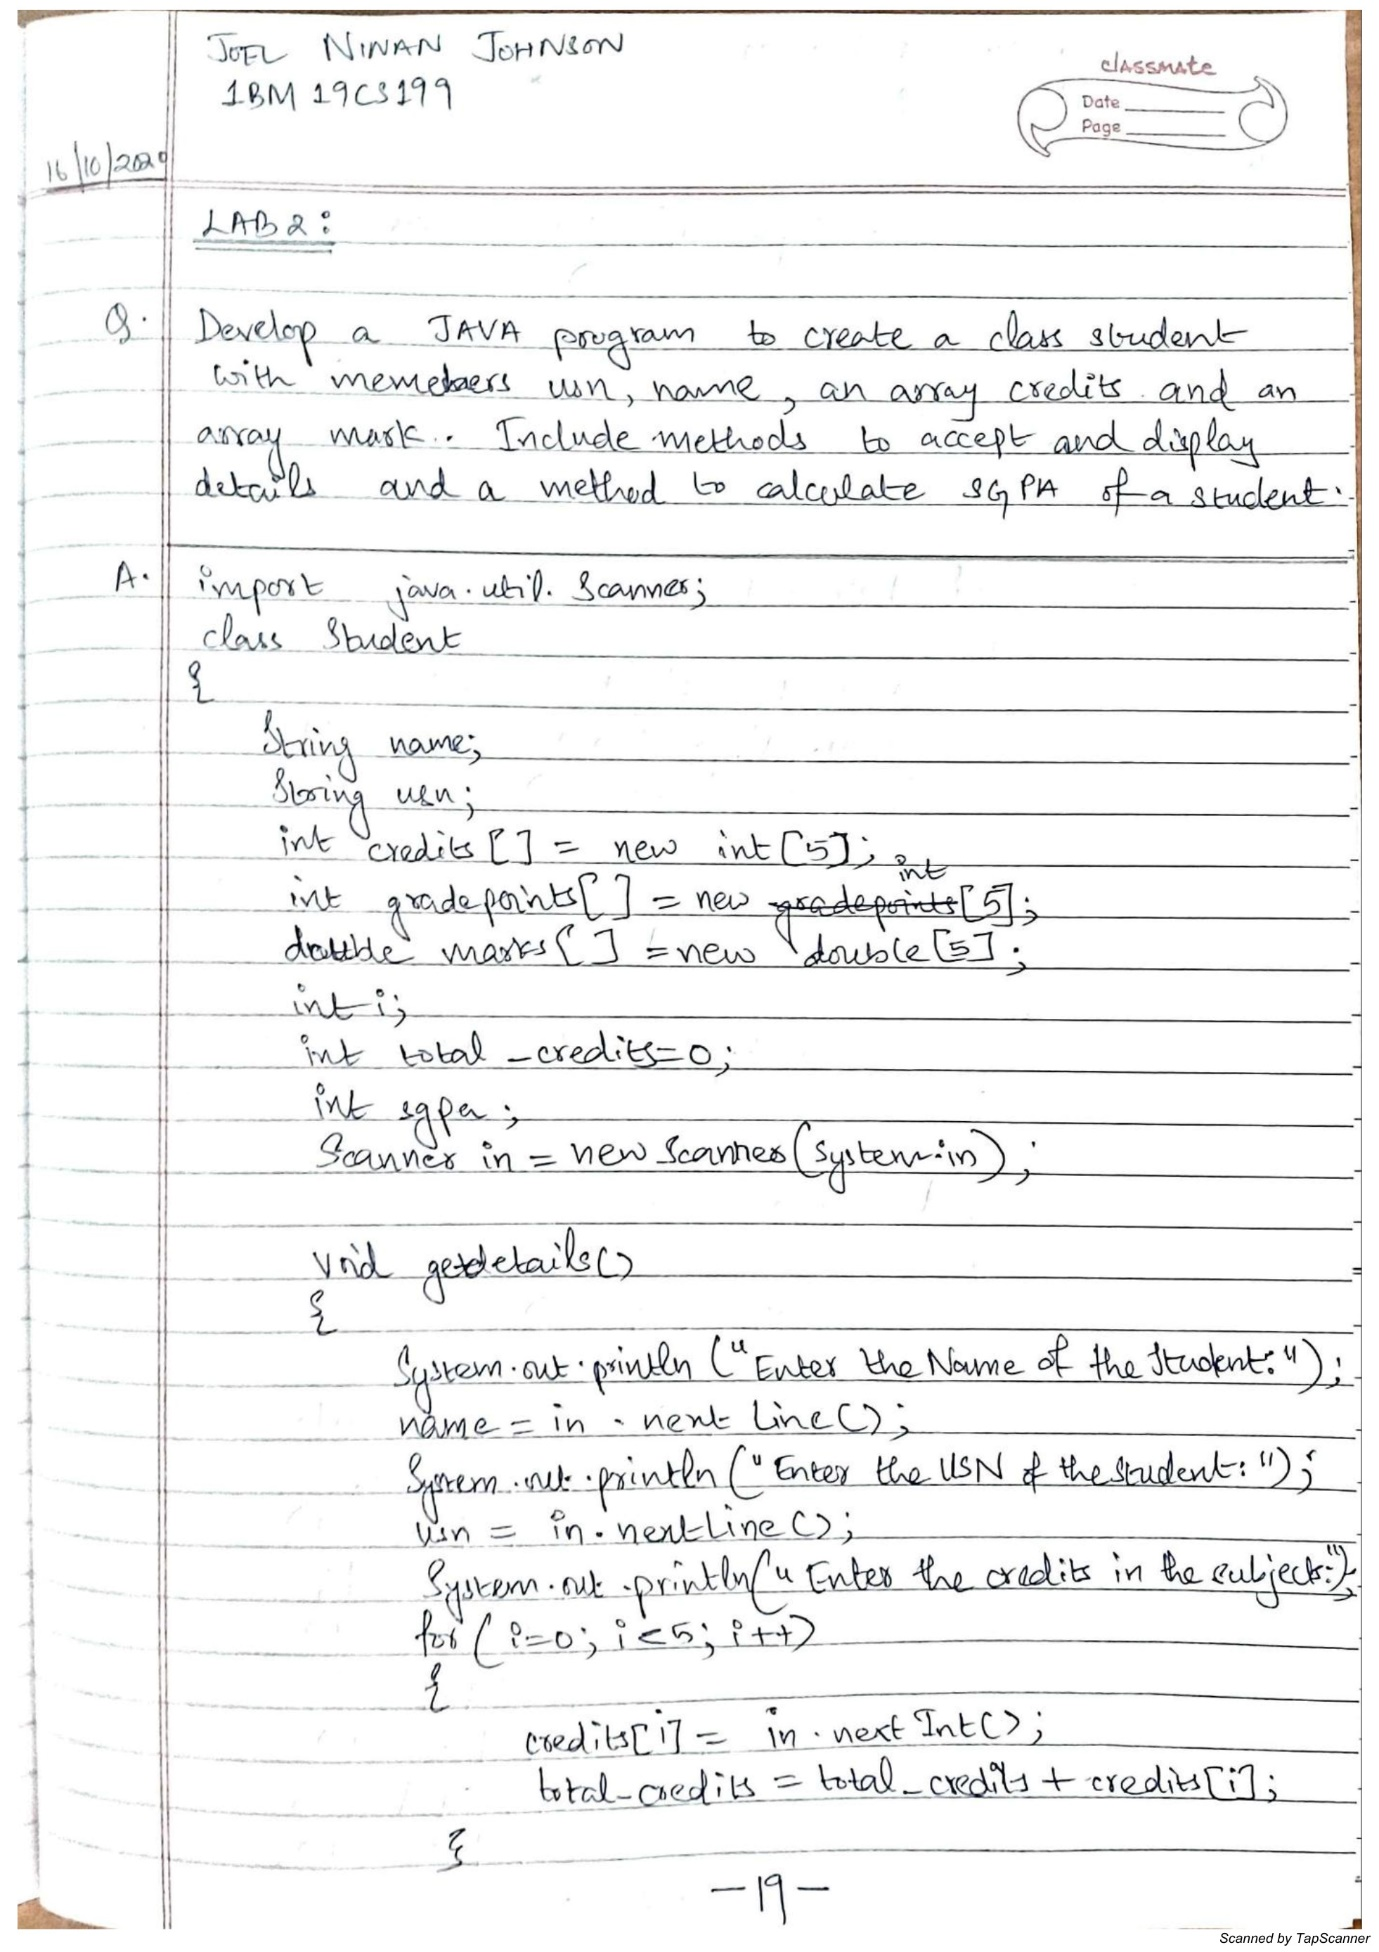 JOEL NINAN JOHNSON
1BM19CS199
classmate
Date
Page
16/10/2020
LAB 2:
Q. Develop a JAVA program to create a class student
with memebers usn, name, an array credits and an
array mark. Include methods to accept and display
details and a method to calculate SGPA of a student.
A. import java.util.Scanner;
class Student
{
String name;
String usn;
int credits[] = new int[5];
int
int gradepoints[] = new gradepoints[5];
double marks[] = new double[5];
int i;
int total_credits=0;
int sgpa;
Scanner in = new Scanner(System.in);
void getdetails()
{
System.out.println("Enter the Name of the Student:");
name = in.nextLine();
System.out.println("Enter the USN of the student:");
usn = in.nextLine();
System.out.println("Enter the credits in the subjects:");
for(i=0; i<5; i++)
{
credits[i] = in.nextInt();
total_credits = total_credits + credits[i];
}
-19-
Scanned by TapScanner